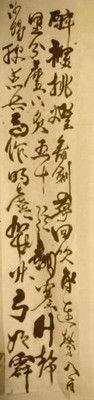 醉裡挑燈看劍夢回吹角連營八百
里分麾下炙五十弦翻塞外聲
沙場秋點兵馬作的盧飛快弓如霹